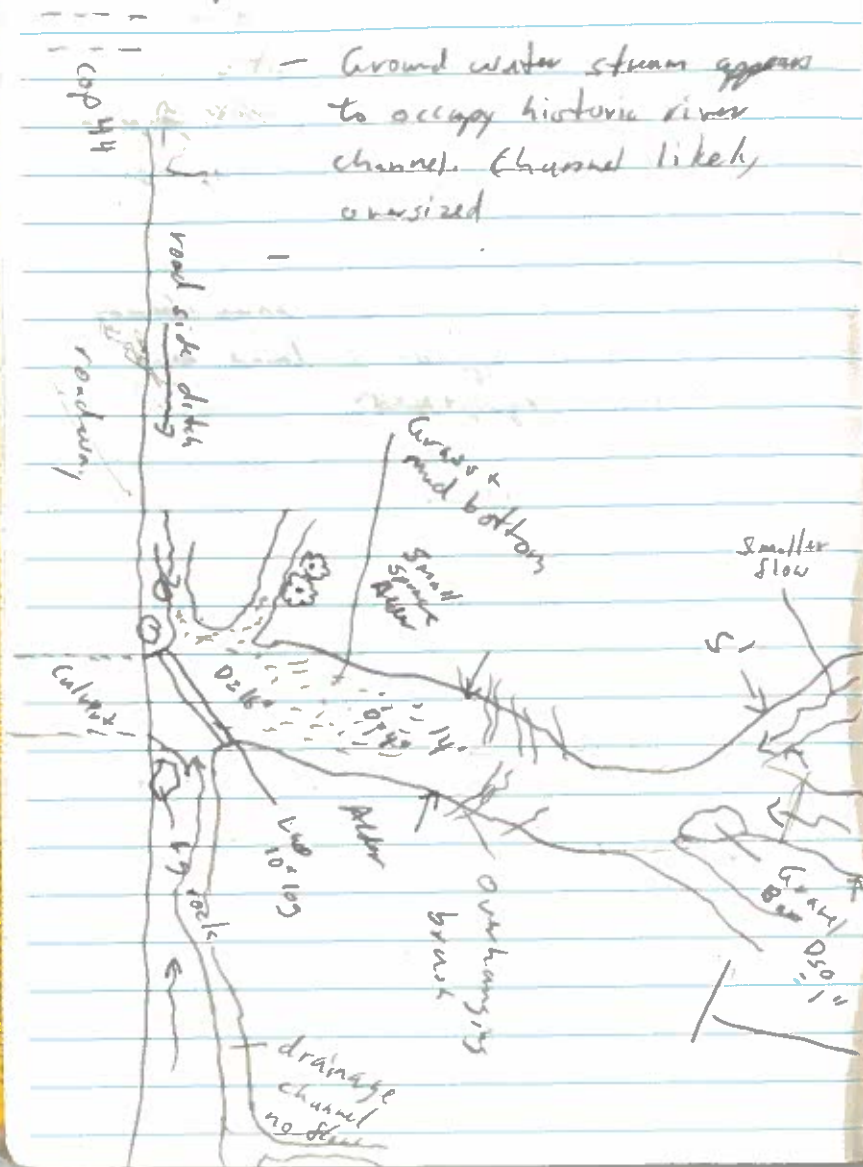 - Ground water stream appears
to occupy historic river
channel. Channel likely
oversized
-
COP 44
road side ditch
roadway
Grass &
mud bottom
Small
Alder
Smaller
flow
Culvert
D=16"
14"
LWD
10" log
Alder
Lg rock
Overhanging
brush
Gravel
Bar
D50
1"
drainage
channel
no flow